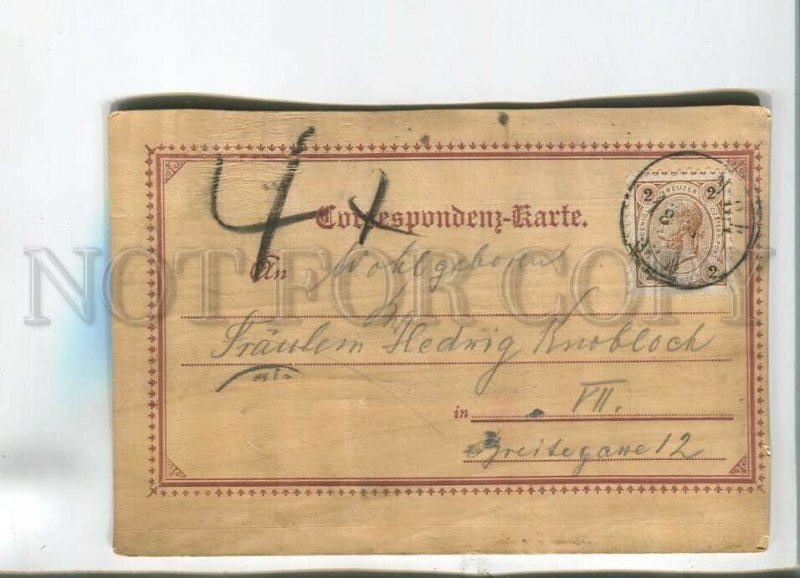 4x
Correspondenz-Karte.
An Wohlgeboren
Fräulein Hedwig Knobloch
in VII.
Breitegasse 12
2 KREUZER 2
2
NOT FOR COPY